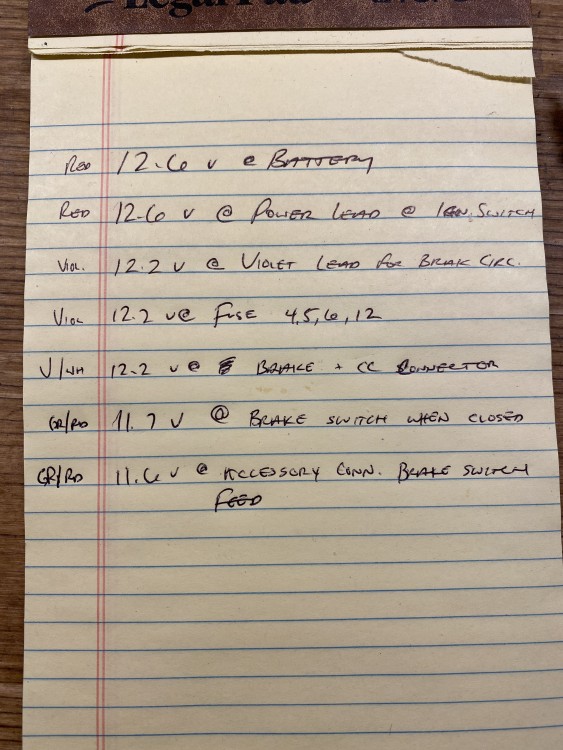 Legal Pad
RED 12.6 V @ BATTERY
RED 12.6 V @ POWER LEAD @ IGN. SWITCH
VIOL. 12.2 V @ VIOLET LEAD FOR BRAK CIRC.
VIOL 12.2 V @ FUSE 4,5,6,12
V/WH 12.2 V @ BRAKE + CC CONNECTOR
GR/RD 11.7 V @ BRAKE SWITCH WHEN CLOSED
GR/RD 11.6 V @ ACCESSORY CONN. BRAKE SWITCH
FEED